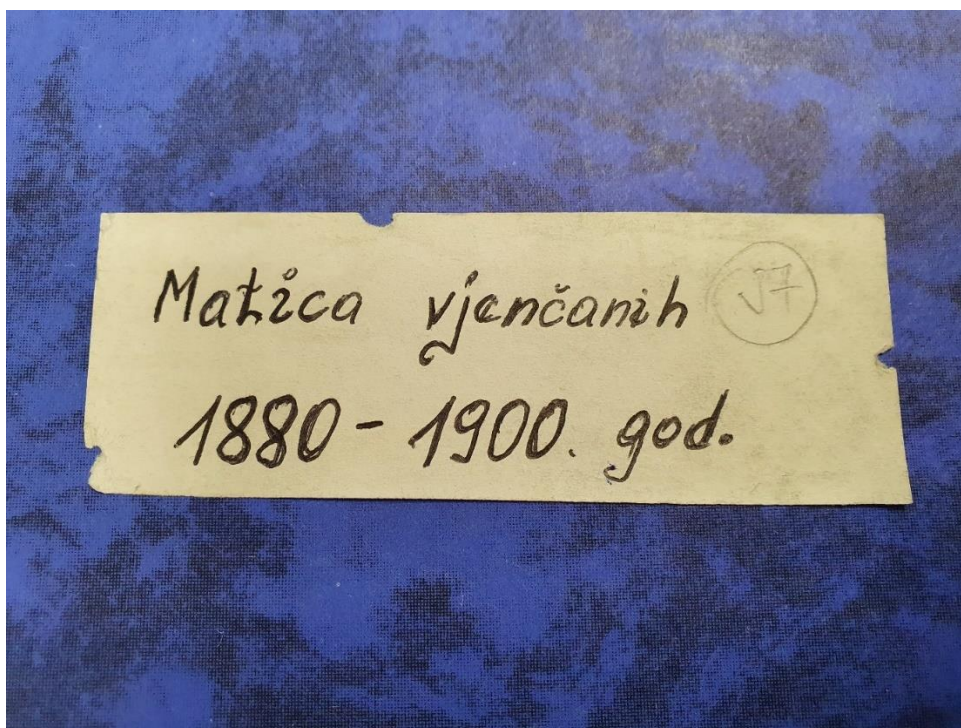 Matica vjenčanih V7
1880 - 1900. god.